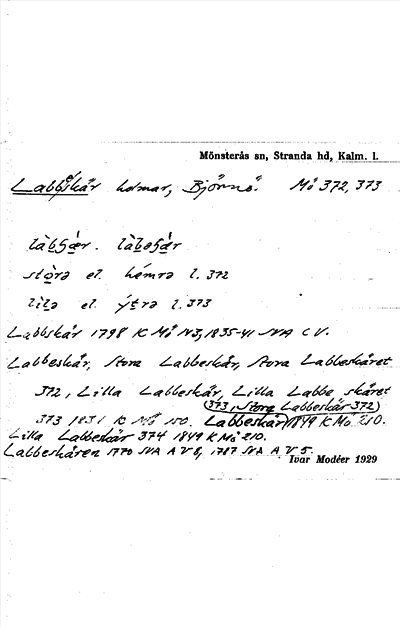 Mönsterås sn, Stranda hd, Kalm. l.
Labbskär holmar, Björnö. Mö 372, 373
störa el. hémra l. 372
lila el. ýtra l. 373
Labbskär 1798 K Mö N3, 1835-41 SVA C V.
Labbeskär, Stora Labbeskär, Stora Labbeskäret
372, Lilla Labbeskär, Lilla Labbe skäret
373 1831 K Mö 150. Labbeskär (373, Stora Labbeskär 372) 1849 K Mö 210.
Lilla Labbeskär 374 1849 K Mö 210.
Labbeskären 1770 SVA A V 8, 1787 SVA A V 5.
Ivar Modéer 1929